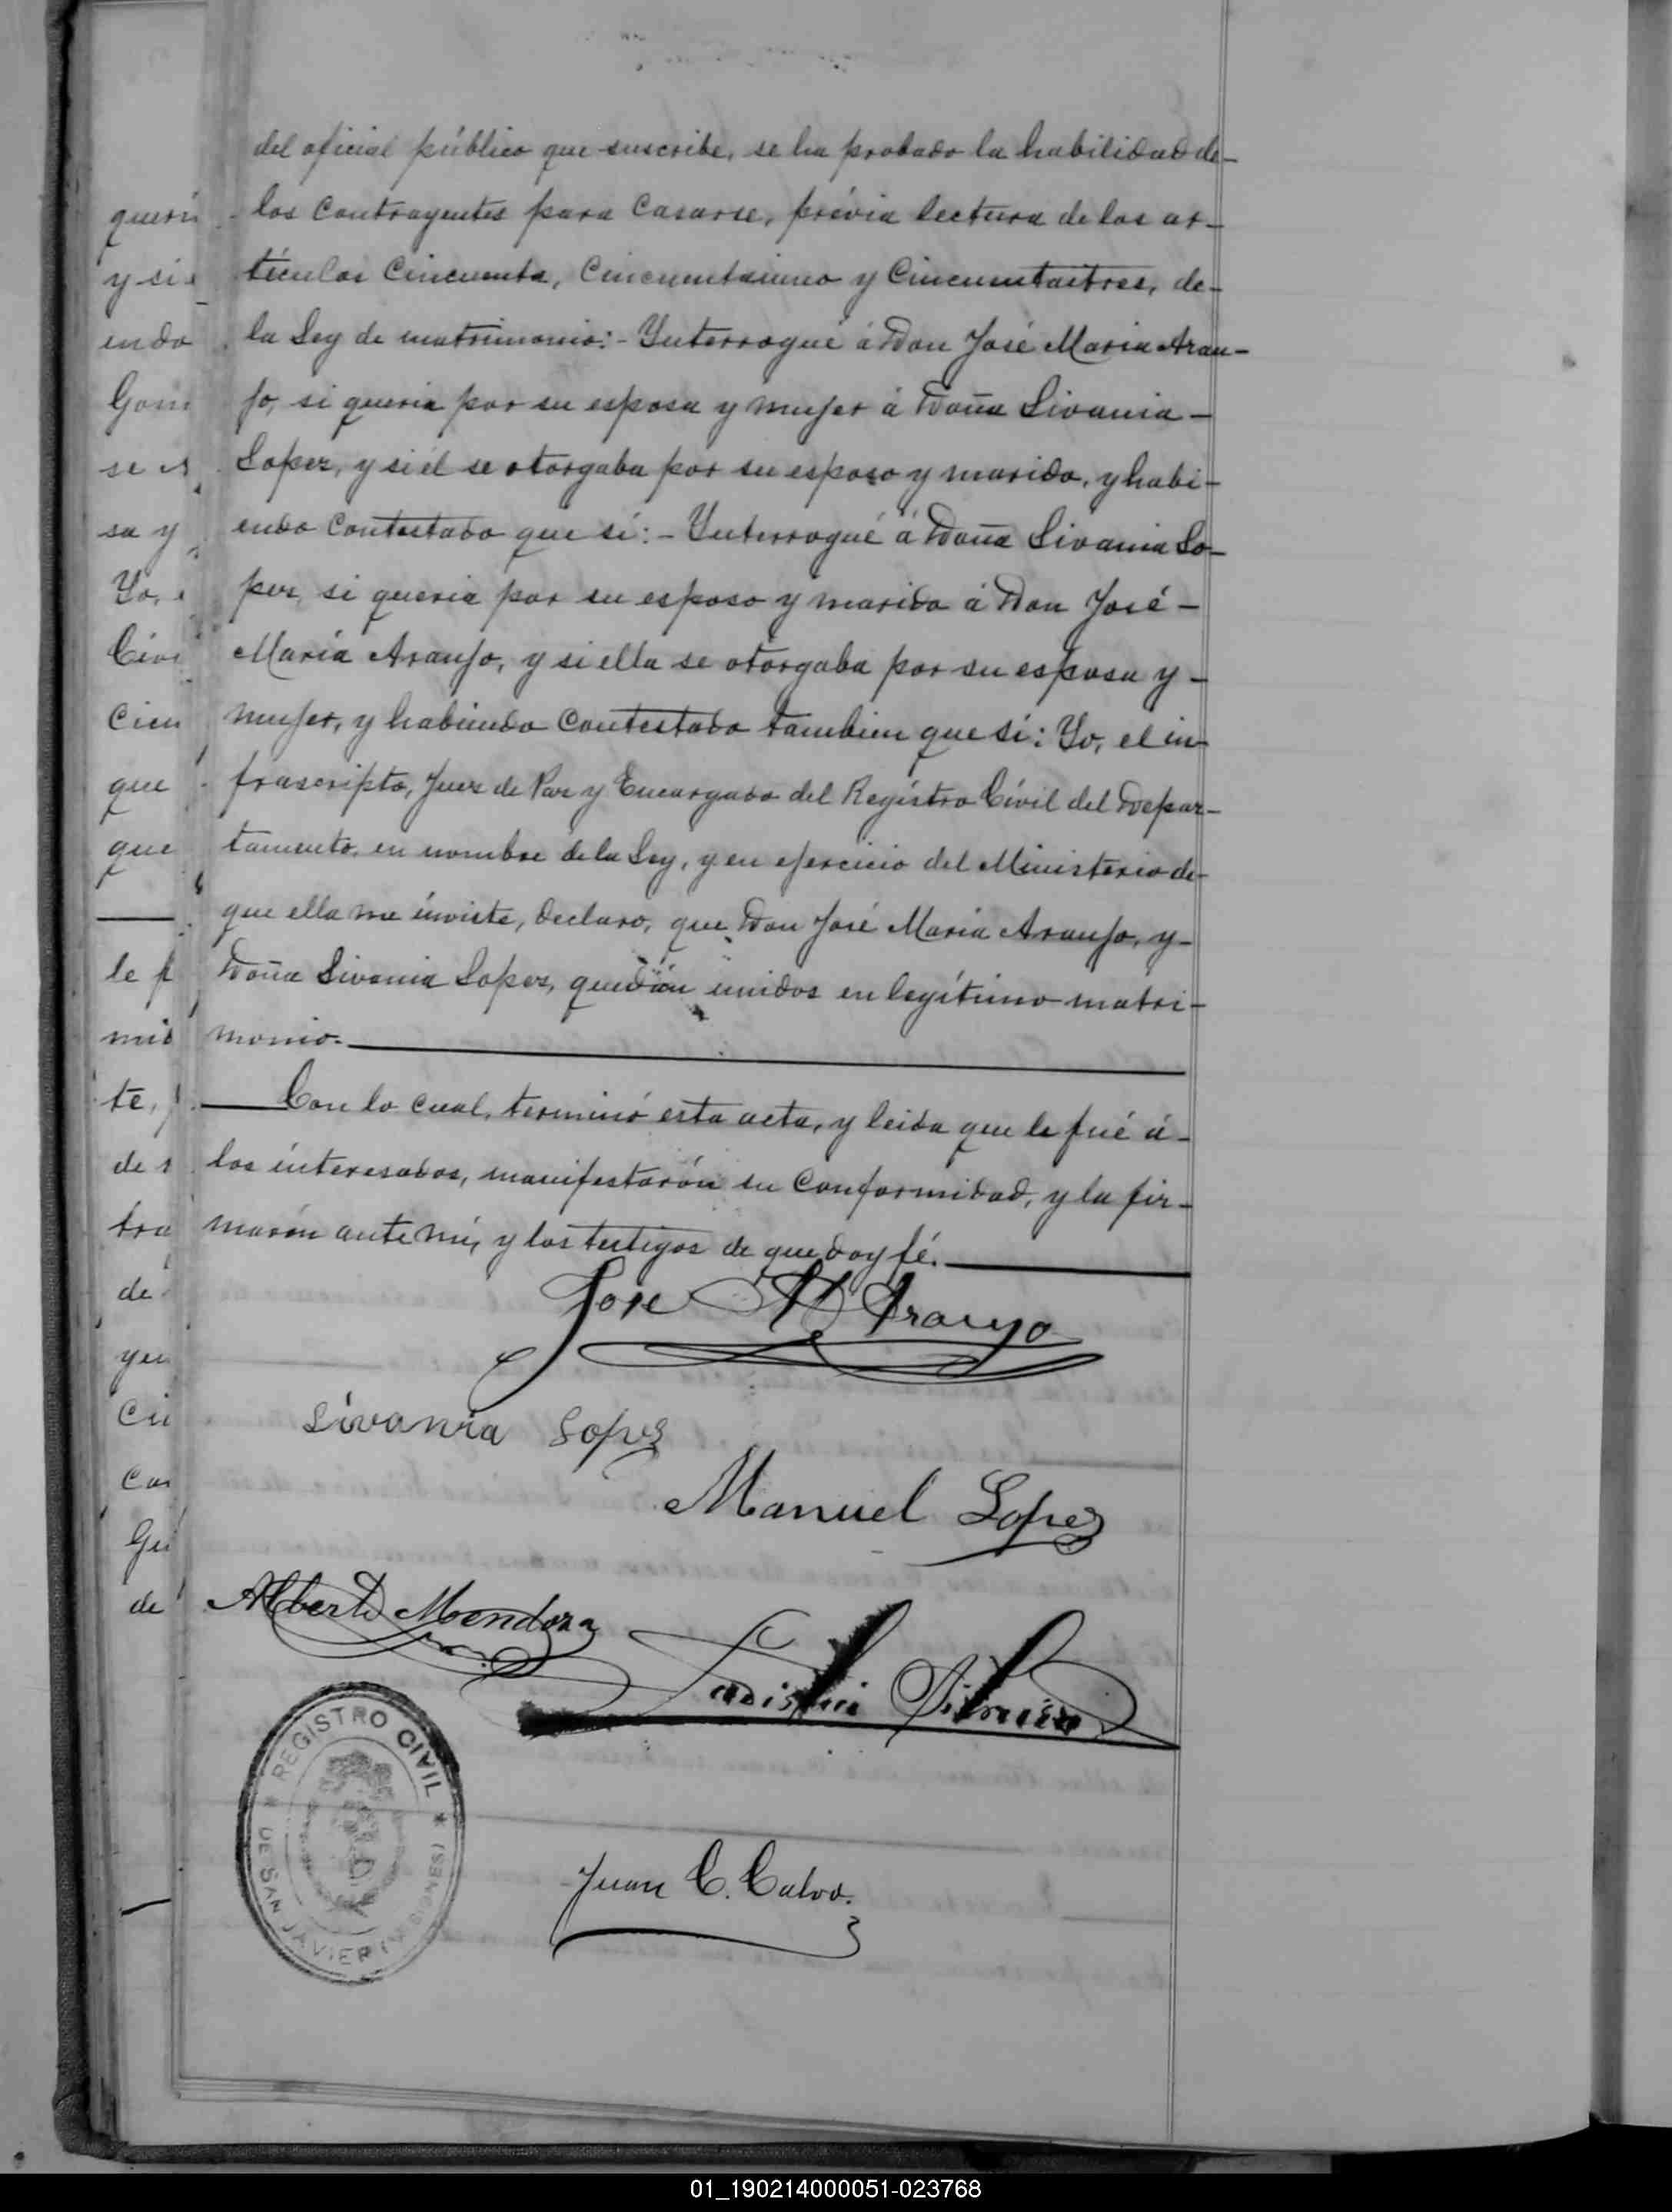 del oficial público que suscribe, se ha probado la habilidad de-
los contrayentes para casarse, prévia lectura de los ar-
tículos cincuenta, cincuentaiuno y cincuentaitres, de-
la Ley de matrimonio:- Ynterrogué á Don José Maria Arau-
jo, si queria por su esposa y mujer á Doña Livania-
Lopez, y si él se otorgaba por su esposo y marido, y habi-
endo contestado que sí:- Ynterrogué á Doña Livania Lo-
pez, si queria por su esposo y marido á Don José-
María Araujo, y si ella se otorgaba por su esposa y-
mujer, y habiendo contestado tambien que sí: Yo, el in-
frascripto, Juez de Paz y Encargado del Registro Cívil del Depar-
tamento, en nombre de la Ley, y en ejercicio del Ministerio de-
que ella me inviste, declaro, que Don José Maria Araujo, y-
Doña Livania Lopez, quedán unidos en legítimo matri-
monio.
Con lo cual, terminó esta acta, y leida que le fué á-
los interesados, manifestarón su conformidad, y la fir-
marón ante mí, y los testigos de que doy fé.
Jose M Araujo
Livania Lopez
Manuel Lopez
Alberto Mendoza
Juan C. Calvo.
REGISTRO CIVIL
DE SAN JAVIER (MISIONES)
querí
y si
endo
Gom
se
sa y
Yo,
Civi
cien
que
que
le
mis
te,
de
tra
de
yen
Cu
Con
Gu
de
01_190214000051-023768